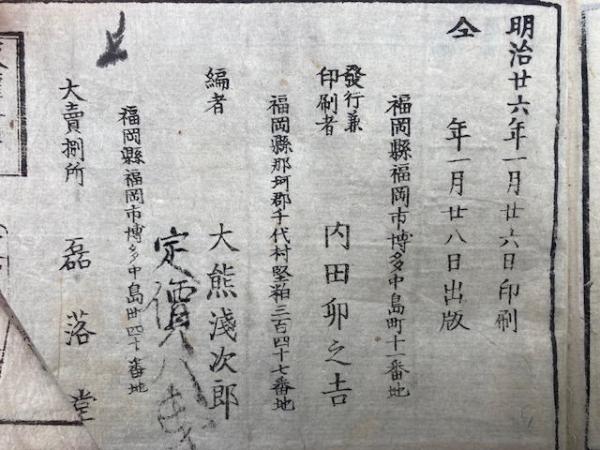 明治廿六年一月廿六日印刷
仝 年一月廿八日出版
福岡縣福岡市博多中島町十一番地
發行兼
印刷者 内田卯之吉
福岡縣那珂郡千代村堅粕三百四十七番地
編者 大熊淺次郎
定價八
福岡縣福岡市博多中島町四十番地
大賣捌所 磊落堂